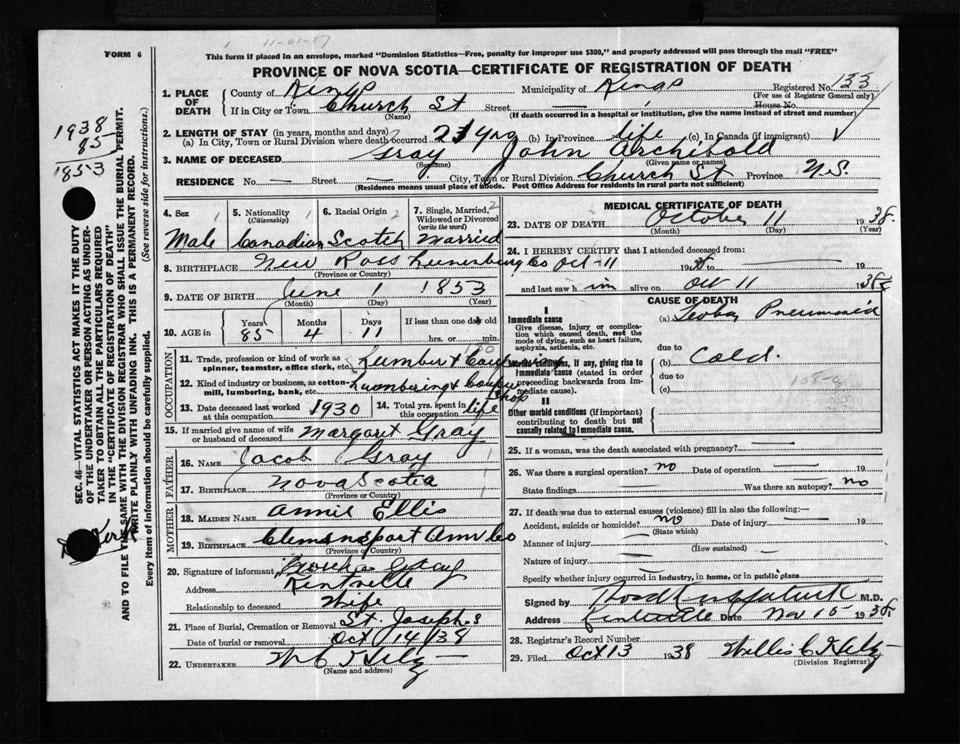 FORM 6
11-01-17
This form if placed in an envelope, marked "Dominion Statistics—Free, penalty for improper use $300," and properly addressed will pass through the mail "FREE"
PROVINCE OF NOVA SCOTIA—CERTIFICATE OF REGISTRATION OF DEATH
1. PLACE OF DEATH
County of Kings Municipality of Kings Registered No. 133
(For use of Registrar General only)
If in City or Town Church St Street — House No. —
(Name) (If death occurred in a hospital or institution, give the name instead of street and number)
2. LENGTH OF STAY (in years, months and days)
(a) In City, Town or Rural Division where death occurred 23 yrs (b) In Province life (c) In Canada (if immigrant)
3. NAME OF DECEASED Gray John Archibald
(Surname) (Given name or names)
RESIDENCE No. — Street — City, Town or Rural Division Church St Province N.S.
(Residence means usual place of abode. Post Office Address for residents in rural parts not sufficient)
4. Sex Male
5. Nationality (Citizenship) Canadian
6. Racial Origin Scotch
7. Single, Married, Widowed or Divorced (write the word) Married
8. BIRTHPLACE New Ross Lunenburg Co
(Province or Country)
9. DATE OF BIRTH June 1 1853
(Month) (Day) (Year)
10. AGE in Years 85 Months 4 Days 11 If less than one day old
hrs. or min.
OCCUPATION
11. Trade, profession or kind of work as spinner, teamster, office clerk, etc. Lumber &
12. Kind of industry or business, as cotton-mill, lumbering, bank, etc. Lumbering & shop
13. Date deceased last worked at this occupation 1930
14. Total yrs. spent in this occupation life
15. If married give name of wife or husband of deceased Margaret Gray
FATHER
16. NAME Jacob Gray
17. BIRTHPLACE Nova Scotia
(Province or Country)
MOTHER
18. MAIDEN NAME Annie Ellis
19. BIRTHPLACE Clemensport Ann Co
(Province or Country)
20. Signature of informant Gray
Address Kentville
Relationship to deceased Wife
21. Place of Burial, Cremation or Removal St. Josephs
Date of burial or removal Oct 14/38
22. UNDERTAKER W C
(Name and address)
MEDICAL CERTIFICATE OF DEATH
23. DATE OF DEATH October 11 1938
(Month) (Day) (Year)
24. I HEREBY CERTIFY that I attended deceased from:
Oct-11 19 to —
and last saw him alive on Oct 11 1938
CAUSE OF DEATH
I
Immediate cause
Give disease, injury or complication which caused death, not the mode of dying, such as heart failure, asphyxia, asthenia, etc.
(a) Lobar Pneumonia
due to
Morbid conditions, if any, giving rise to immediate cause (stated in order proceeding backwards from immediate cause).
(b) Cold.
due to
(c)
II
Other morbid conditions (if important) contributing to death but not causally related to immediate cause.
25. If a woman, was the death associated with pregnancy? —
26. Was there a surgical operation? no Date of operation — 19
State findings Was there an autopsy? no
27. If death was due to external causes (violence) fill in also the following:—
Accident, suicide or homicide? no Date of injury — 19
(State which)
Manner of injury —
(How sustained)
Nature of injury —
Specify whether injury occurred in industry, in home, or in public place
Signed by M.D.
Address Kentville Date Nov 15 1938
28. Registrar's Record Number
29. Filed Oct 13 1938 Willis C
(Division Registrar)
1938
85
1853
SEC. 46—VITAL STATISTICS ACT MAKES IT THE DUTY
OF THE UNDERTAKER OR PERSON ACTING AS UNDER-
TAKER TO OBTAIN ALL THE PARTICULARS REQUIRED
IN THE "CERTIFICATE OF REGISTRATION OF DEATH"
AND TO FILE THE SAME WITH THE DIVISION REGISTRAR WHO SHALL ISSUE THE BURIAL PERMIT.
WRITE PLAINLY WITH UNFADING INK. THIS IS A PERMANENT RECORD.
Every item of information should be carefully supplied. (See reverse side for instructions.)